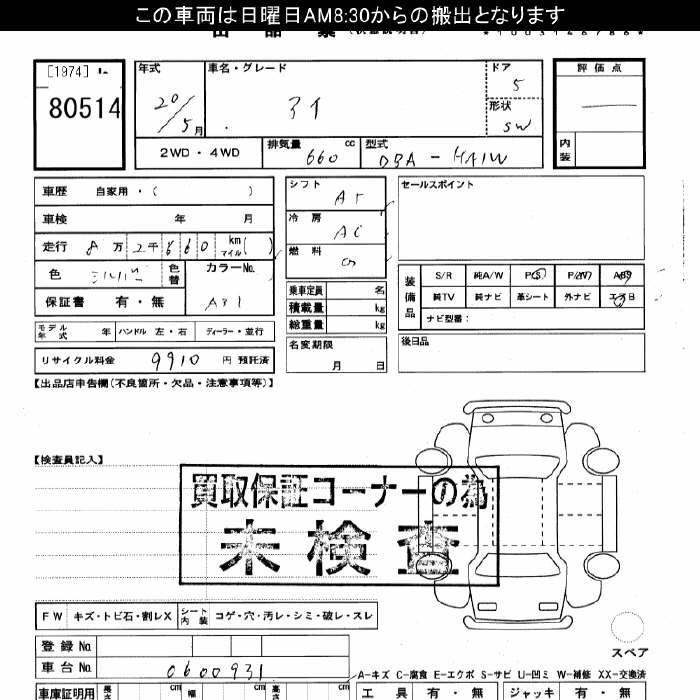 この車両は日曜日AM8:30からの搬出となります
[1974]
80514
年式
20/5月
車名・グレード
アイ
ドア
5
形状
SW
評価点
内装
2WD・4WD
排気量 660 cc
型式 DBA-HA1W
車歴 自家用・( )
車検 年 月
走行 8万2千660 km マイル( )
色
色替
カラーNo.
A31
保証書 有・無
モデル年式 年
ハンドル 左・右
ディーラー・並行
リサイクル料金 9910 円 預託済
シフト AT
冷房 AC
燃料
乗車定員 名
積載量 kg
総重量 kg
名変期限
月 日
セールスポイント
装備品
S/R 純A/W P/S P/W ABS
純TV 純ナビ 革シート 外ナビ エアB
ナビ型番:
後日品
【出品店申告欄(不良箇所・欠品・注意事項等)】
【検査員記入】
買取保証コーナーの為
未検査
FW キズ・トビ石・割レX
シート内装 コゲ・穴・汚レ・シミ・破レ・スレ
スペア
登録No.
車台No. 0600931
A-キズ C-腐食 E-エクボ S-サビ U-凹ミ W-補修 XX-交換済
車庫証明用
長さ cm 幅 cm 高さ cm
工具 有・無
ジャッキ 有・無